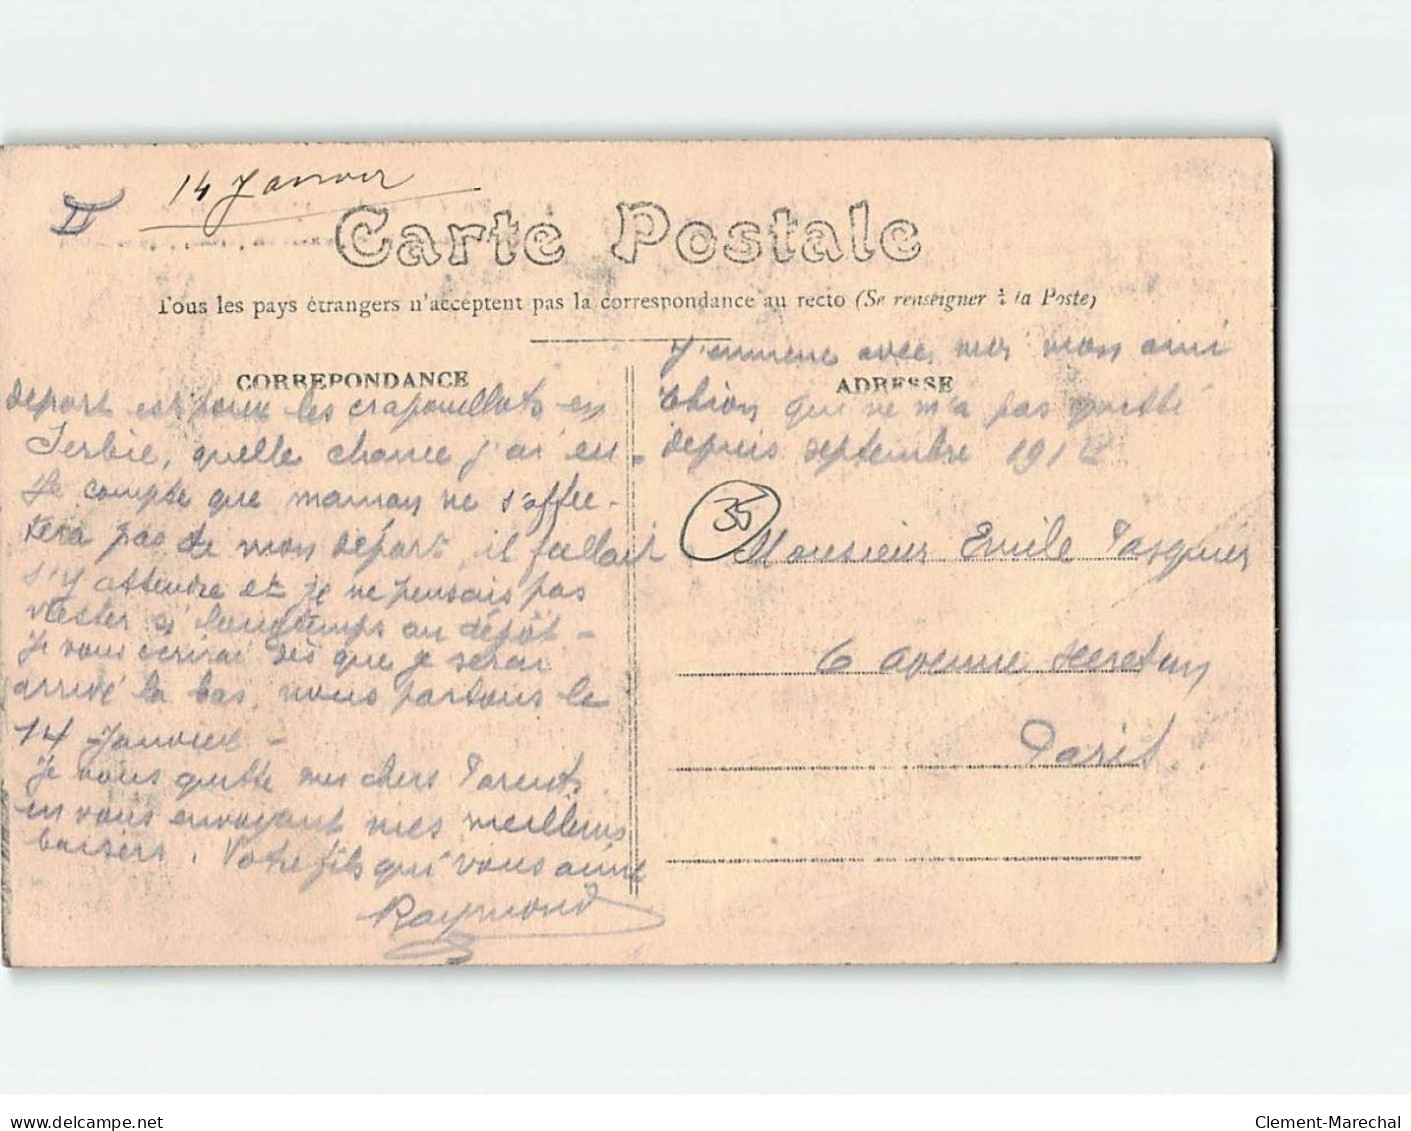 II
14 Janvier
Carte Postale
Tous les pays étrangers n'acceptent pas la correspondance au recto (Se renseigner à la Poste)
CORREPONDANCE
départ est pour les crapouillots en
Serbie, quelle chance j'ai eu.
Je compte que maman ne s'affec-
tera pas de mon départ, il fallait
s'y attendre et je ne pensais pas
rester si longtemps au dépôt -
Je vous écrirai dès que je serai
arrivé là bas, nous partons le
14 Janvier -
Je vous quitte mes chers Parents
en vous envoyant mes meilleurs
baisers. Votre fils qui vous aime
Raymond
J'emmene avec moi mon ami
qui ne m'a pas quitté
depuis septembre 191
ADRESSE
35
Monsieur Emile Pasquier
6 avenue Secretan
Paris
www.delcampe.net
Clement-Marechal